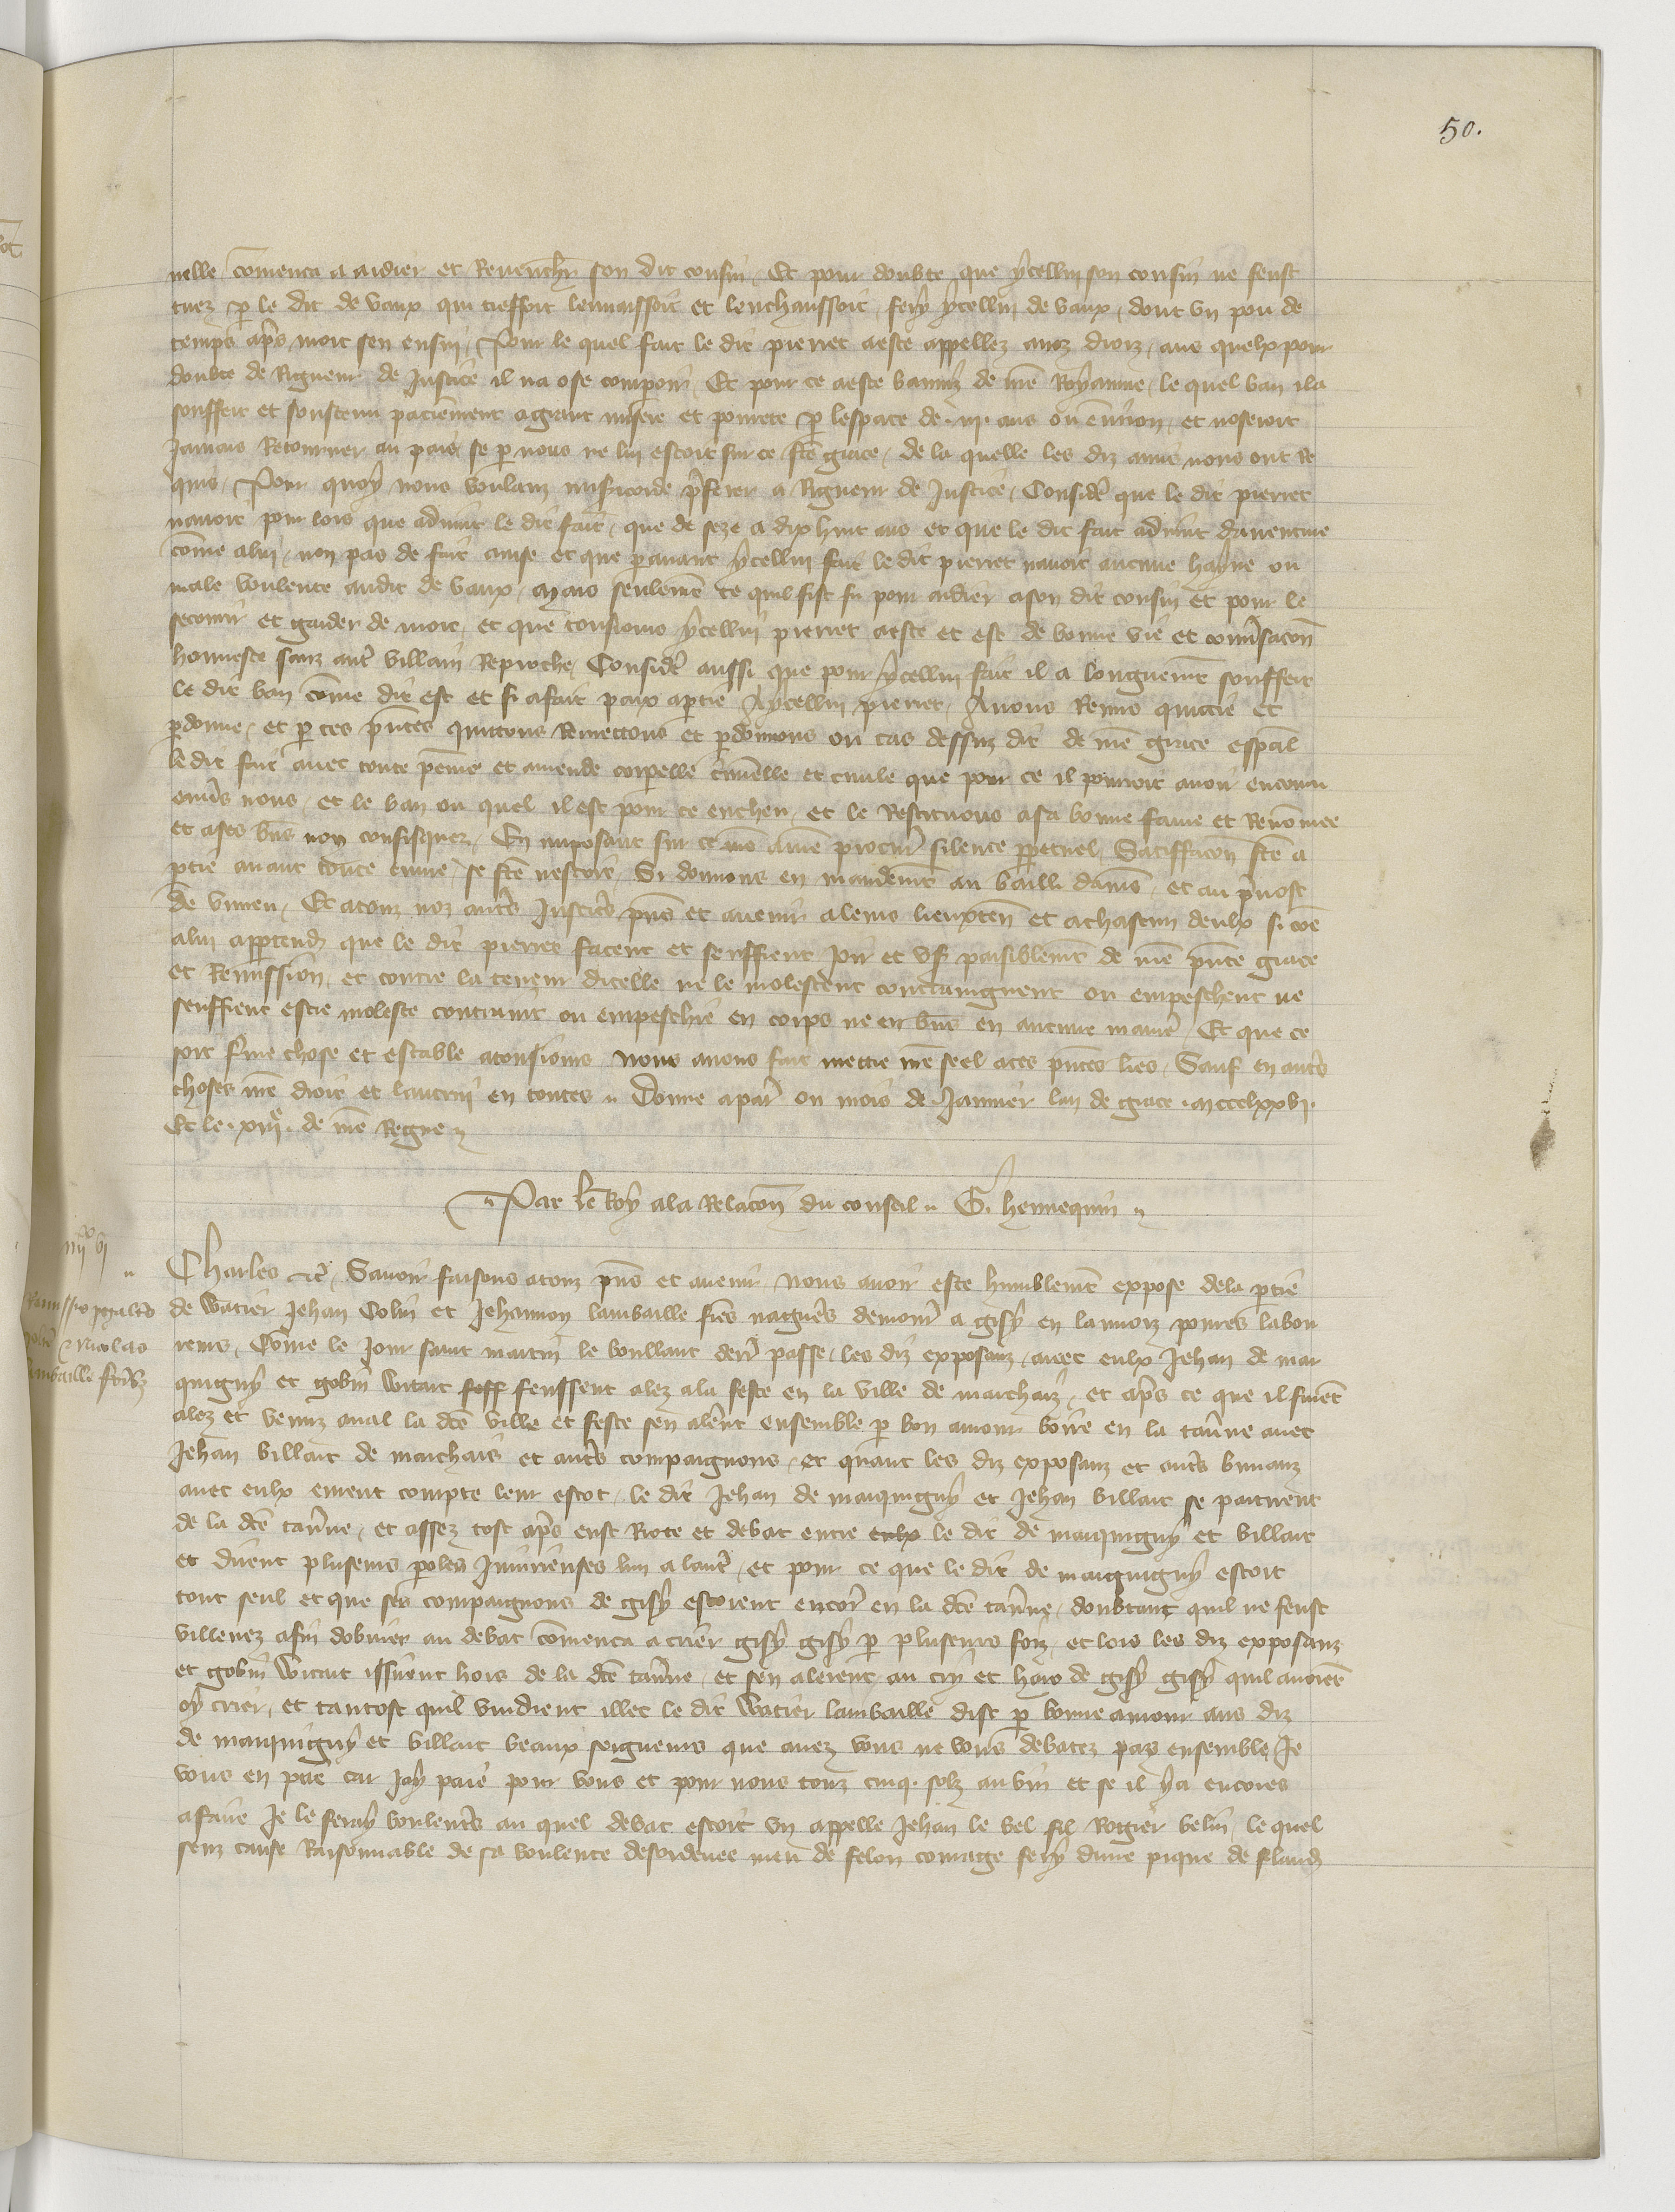 50.
nelle comenca a aidier et Revenchr son dit cousin Et pour doubte que ycellui son cousin ne feust
tuez p le dit de vaux qui tressort et lenchaussoit fery ycellui de vaux dont un pou de
temps aps mort sen ensui Pour le quel fait le dit pierret a este appellez a noz droiz aus quelx pour
doubte de Rigueur de Justice il na ose comparoir Et pour ce a este banniz de nre Royaume le quel ban il a
souffert et soustenu paciement a grant misere et povrete p lespace de .iij. ans ou environ et noseroit
Jamais Retourner au pais se p nous ne lui estoit sur ce fte grace de la quelle les diz amis nous ont Re
quis Pour quoy nous voulanz misicorde prferer a Rigueur de Justice Consider que le dit pierret
navoit pour lors que advint le dit fait que de seze a dix huit ans et que le dit fait advint daventure
come a lui non pas de fait a mise et que p avant ycellui fait le dit pierret navoit aucune hayne ou
male voulente au dit de vaux mais seulemt ce quil fist fu pour aidier a son dit cousin et pour le
secourir et garder de mort et que tousiours ycellui pierret a este et est de bonne vie et conversacon
honneste sanz autr villain Reproche Consider aussi que pour ycellui fait il a longuemt souffert
le dit ban come dit est et si a fait paix a ptie A ycellui pierret Avons Remis quictie et
pdonne et p ces pntes quittons Remettons et pdonnons ou cas dessuz dit de nre grace espal
le dit fait avec toute peine et amende corpelle criminelle et civile que pour ce il pourroit avoir encouru
envs nous et le ban ou quel il est pour ce encheu et le Restituons a sa bonne fame et Renomee
et a ses biens non confisquez En imposant sur ce a nre procur silence ppetuel Satiffacon fte a
ptie avant toute euvre se fte nestoit Si donnons en mandemt au bailli damiens et au prvost
de vimeu Et a touz noz autrs Justicrs pns et avenir a leurs lieuxten et a chascun deulx si coe
a lui apptendra que le dit pierret facent et seuffrent Joir et user paisiblemt de nre pnte grace
et Remission et contre la teneur dicelle ne le molestent contraingnent ou empeschent ne
seuffrent estre moleste contraint ou empeschie en corps ne en biens en aucune manier Et que ce
soit ferme chose et estable a tousiours Nous avons fait mettre nre seel a ces pntes lres Sauf en autrs
choses nre droit et lautrui en toutes Donne a paris ou mois de Janvier lan de grace .mccclxxvi.
Et le .xiije. de nre Regne
Par le Roy a la Relacon du conseil G. hennequin
iiijxx vj
Remissio
Nicolao
lambaille
Charles etc Savoir faisons a touz pns et avenir Nous avoir este humblemt expose de la ptie
de Watier Jehan Colin et Jehannon lambaille frres nagueres demour a gisy en lannoiz povres labou
reurs Come le Jour saint martin le boullant derr passe les diz exposanz avec eulx Jehan de mar
quigny et gobin Witart feussent alez a la feste en la ville de marchaiz et aps ce que il furent
alez et venuz aval la dce ville et feste sen alerent ensemble p bon amour boire en la taverne avec
Jehan billart de marchais et autrs compaignons et quant les diz exposanz et autrs buvanz
avec eulx eurent compte leur escot le dit Jehan de marquigny et Jehan billart se partirent
de la dce taverne et assez tost aps eust Riote et debat entre eulx le dit de marquigny et billart
et dirent pluseurs poles Injurieuses lun a lautr et pour ce que le dit de marquigny estoit
tout seul et que ses compaignons de gisy estoient encor en la dce taverne doubtant quil ne feust
villenez afin dobvier au debat comenca a crier gisy gisy p pluseurs foiz et lors les diz exposanz
et gobin Witart issirent hors de la dce taverne et sen alerent au cry et haro de gisy gisy quil avoient
oy crier et tantost quil vindrent illec le dit Watier lambaille dist p bonne amour aus diz
de marquigny et billart beaux seigneurs que avez vous ne vous debatez pas ensemble Je
vous en prie car Jay paie pour vous et pour nous touz cinq solz au vin et se il y a encores
a faire Je le feray voulentrs au quel debat estoit un appelle Jehan le bel filz Rogier belin le quel
senz cause Raisonnable de sa voulente desordenee meu de felon courage fery dune pique de fland